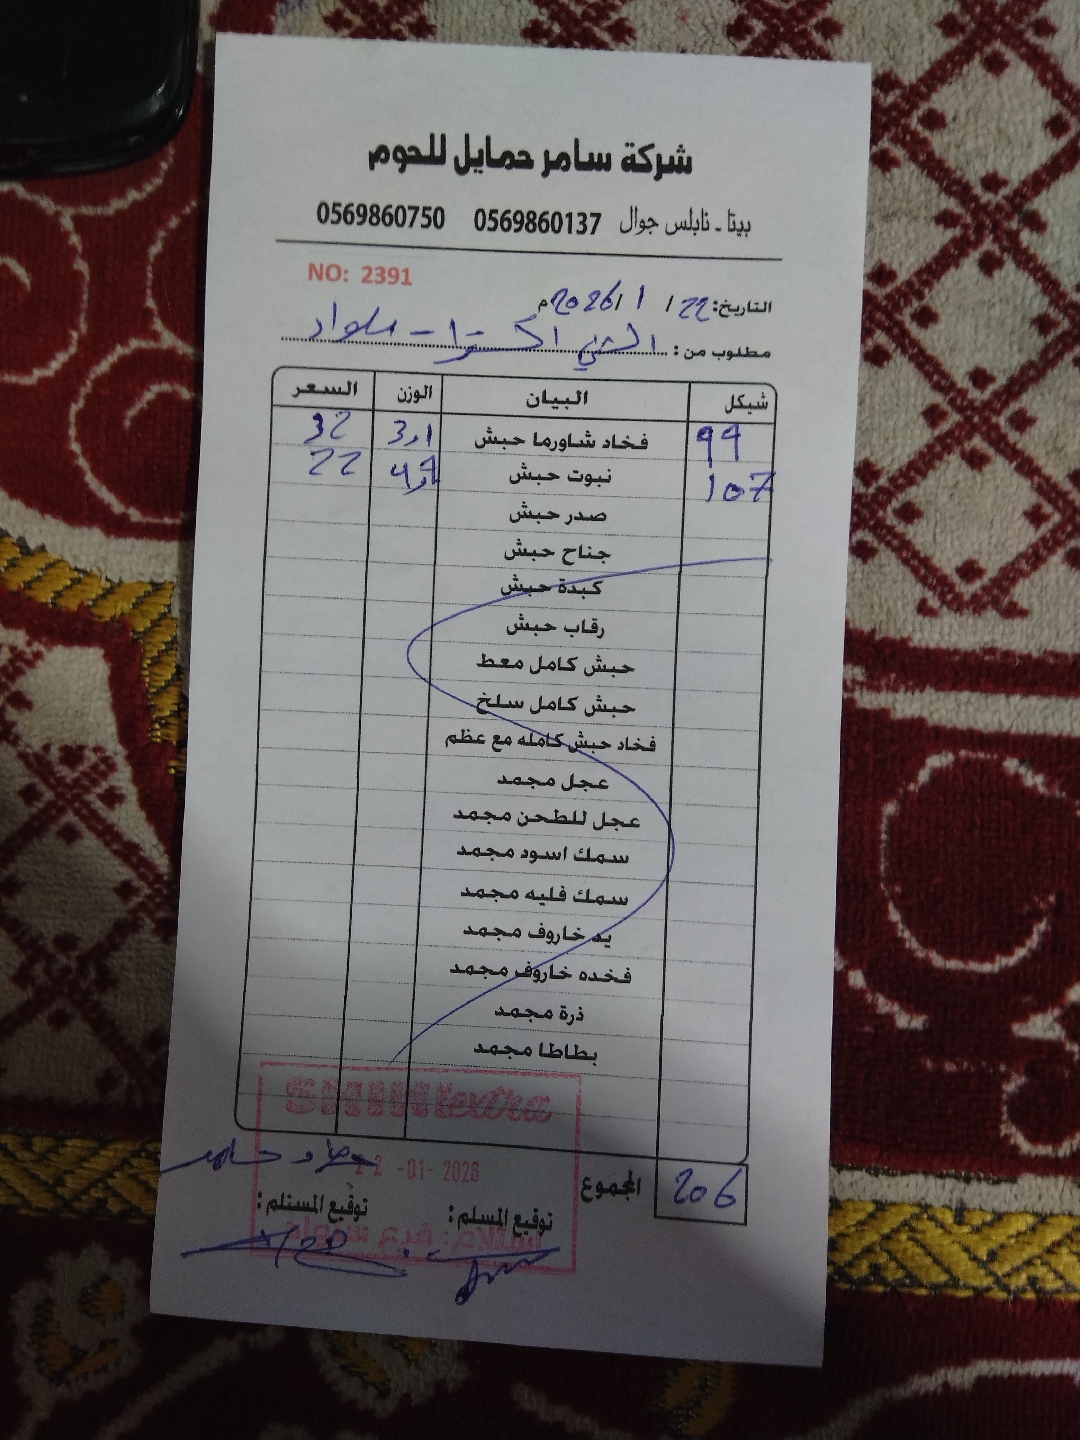 شركة سامر حمايل للحوم
بيتا - نابلس جوال 0569860137 0569860750
NO: 2391
التاريخ: 22 / 1 / 2026م
مطلوب من : الشني اكسترا - سلواد
شيكل البيان الوزن السعر
99 فخاد شاورما حبش 3,1 32
107 نبوت حبش 4,9 22
صدر حبش
جناح حبش
كبدة حبش
رقاب حبش
حبش كامل معط
حبش كامل سلخ
فخاد حبش كامله مع عظم
عجل مجمد
عجل للطحن مجمد
سمك اسود مجمد
سمك فليه مجمد
يد خاروف مجمد
فخده خاروف مجمد
ذرة مجمد
بطاطا مجمد
extra
22 -01- 2026
المجموع 206
توقيع المسلم : توقيع المستلم :
استلام: فرع سلواد